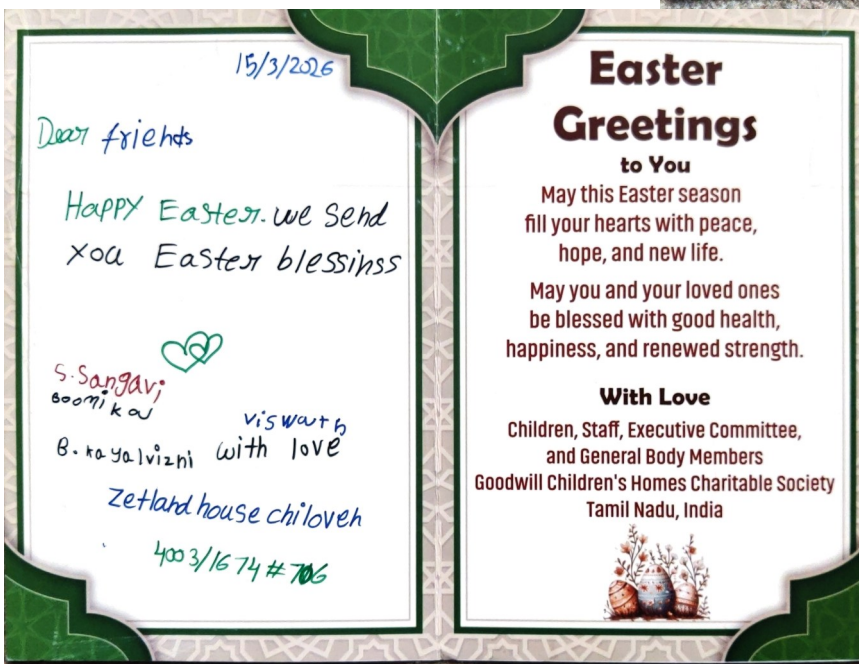 15/3/2026
Dear friends
Happy Easter. we send
you Easter blessinss
S. Sangavi
Boomika
viswath
B. Kayalvizhi with love
Zetland house chiloveh
4003/1674 # 706
Easter
Greetings
to You
May this Easter season
fill your hearts with peace,
hope, and new life.
May you and your loved ones
be blessed with good health,
happiness, and renewed strength.
With Love
Children, Staff, Executive Committee,
and General Body Members
Goodwill Children's Homes Charitable Society
Tamil Nadu, India